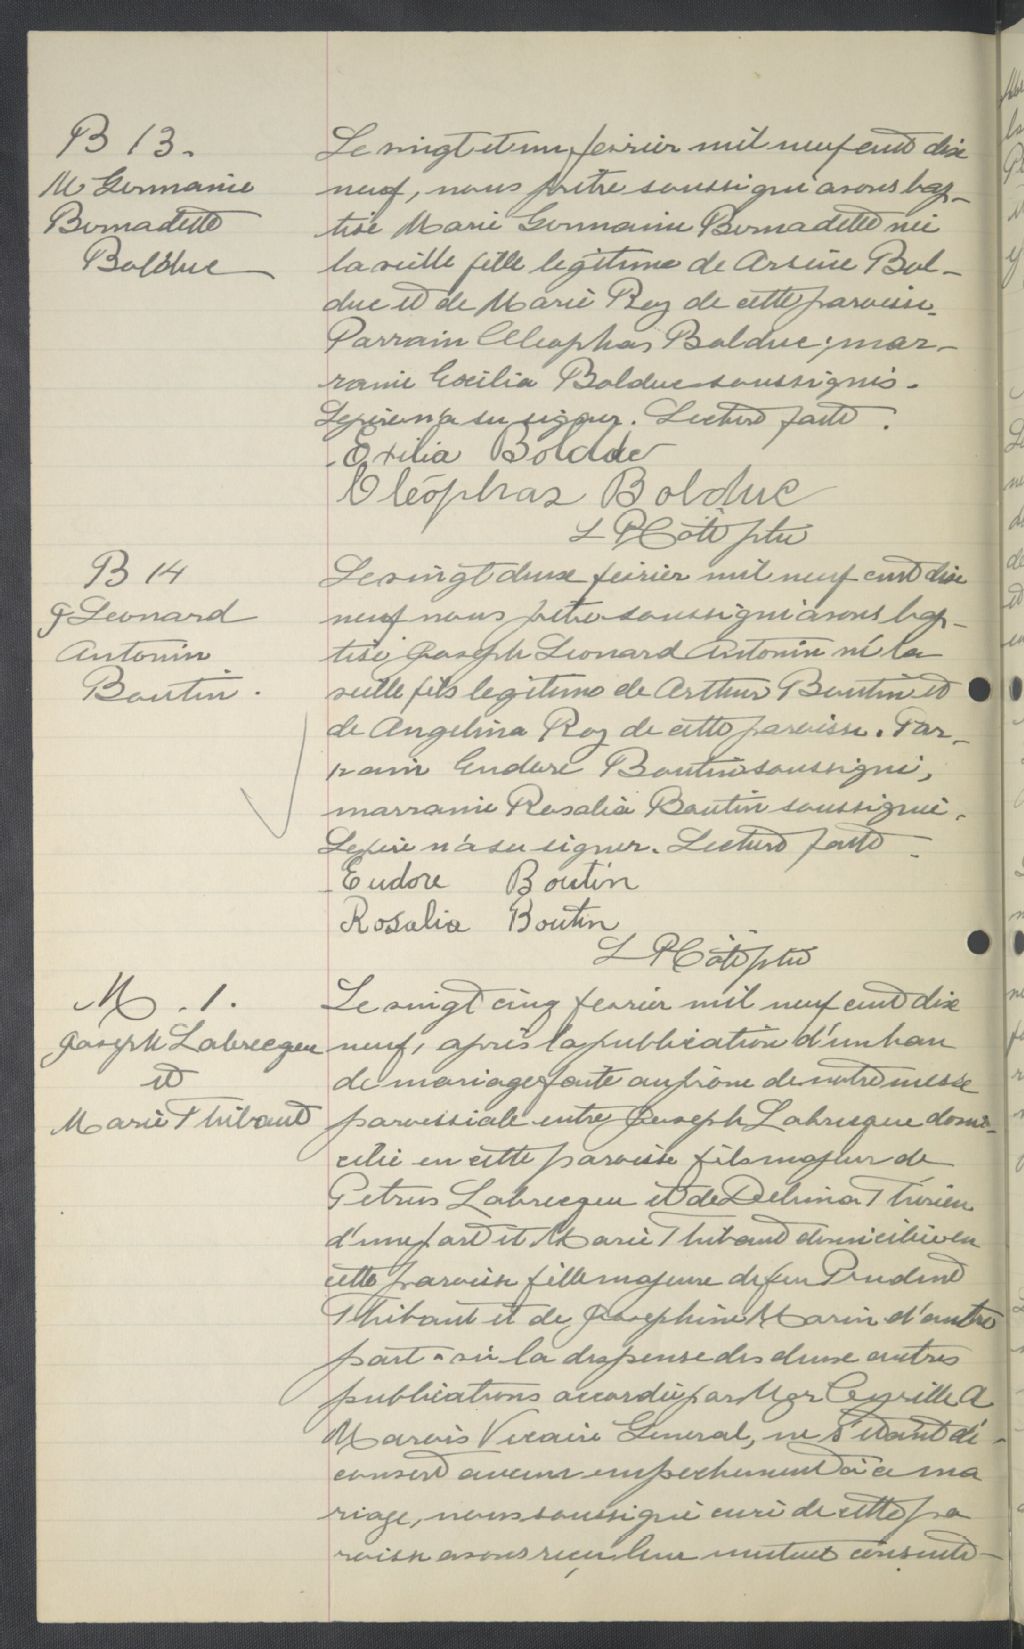 B 13.
M Germanie
Bernadette
Bolduc
Le vingt et un fevrier mil neuf cent dix
neuf, nous prêtre soussigné avons bap-
tisé Marie Germanie Bernadette née
la veille fille legitime de Arsène Bol-
duc et de Marie Roy de cette paroisse.
Parrain Cléophas Bolduc; mar-
raine Exilia Bolduc soussignés.
Le père n'a su signer. Lecture faite.
Exilia Bolduc
Cléophas Bolduc
L P Côté ptre
B 14
J Leonard
Antonin
Boutin.
Le vingt deux fevrier mil neuf cent dix
neuf nous prêtre soussigné avons bap-
tisé Joseph Leonard Antonin né la
veille fils legitime de Arthur Boutin et
de Angelina Roy de cette paroisse. Par-
rain Eudore Boutin soussigné,
marraine Rosalia Boutin soussignée.
Le père n'a su signer. Lecture faite.
Eudore Boutin
Rosalia Boutin
L P Côté ptre
M. 1.
Joseph Labrecque
et
Marie Thibaut
Le vingt cinq fevrier mil neuf cent dix
neuf, après la publication d'un ban
de mariage faite au prône de notre messe
paroissiale entre Joseph Labrecque domi-
cilié en cette paroisse fils majeur de
Petrus Labrecque et de Delvina Thivien
d'une part et Marie Thibaut domiciliée en
cette paroisse fille majeure de feu Prudent
Thibaut et de Josephine Marin d'autre
part - vu la dispense des deux autres
publications accordée par Mgr Cyrille A
Marois Vicaire General, ne s'étant dé-
couvert aucun empechement à ce ma
riage, nous soussigné curé de cette pa
roisse avons reçu leur mutuel consente-